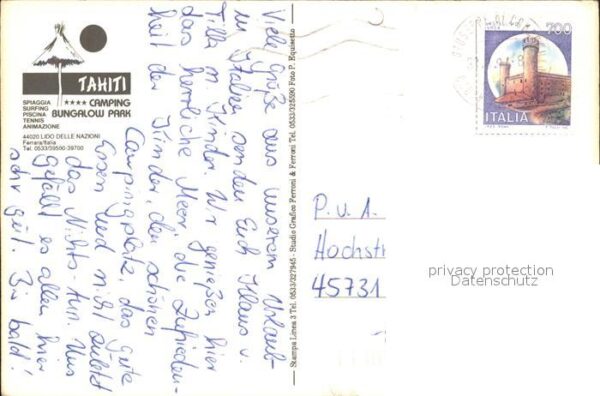 TAHITI
★★★★ CAMPING
BUNGALOW PARK
SPIAGGIA
SURFING
PISCINA
TENNIS
ANIMAZIONE
44020 LIDO DELLE NAZIONI
Ferrara/Italia
Tel. 0533/39500-39700
Viele Grüße aus unserem Urlaub
in Italien senden Euch Klaus u.
Tilla m. Kinder. Wir genießen hier
das herrliche Meer, die Zufrieden-
heit der Kinder, den schönen
Campingplatz, das gute
Essen und nicht zuletzt
das Nichts-tun. Uns
gefällt es allen hier
sehr gut. Bis bald!
Stampa Linea 3 Tel. 0533/327945 - Studio Grafico Ferroni & Ferroni Tel. 0533/325590 Foto P. Equisetto
700
ITALIA
P. u. A.
Hochstr
45731
privacy protection
Datenschutz